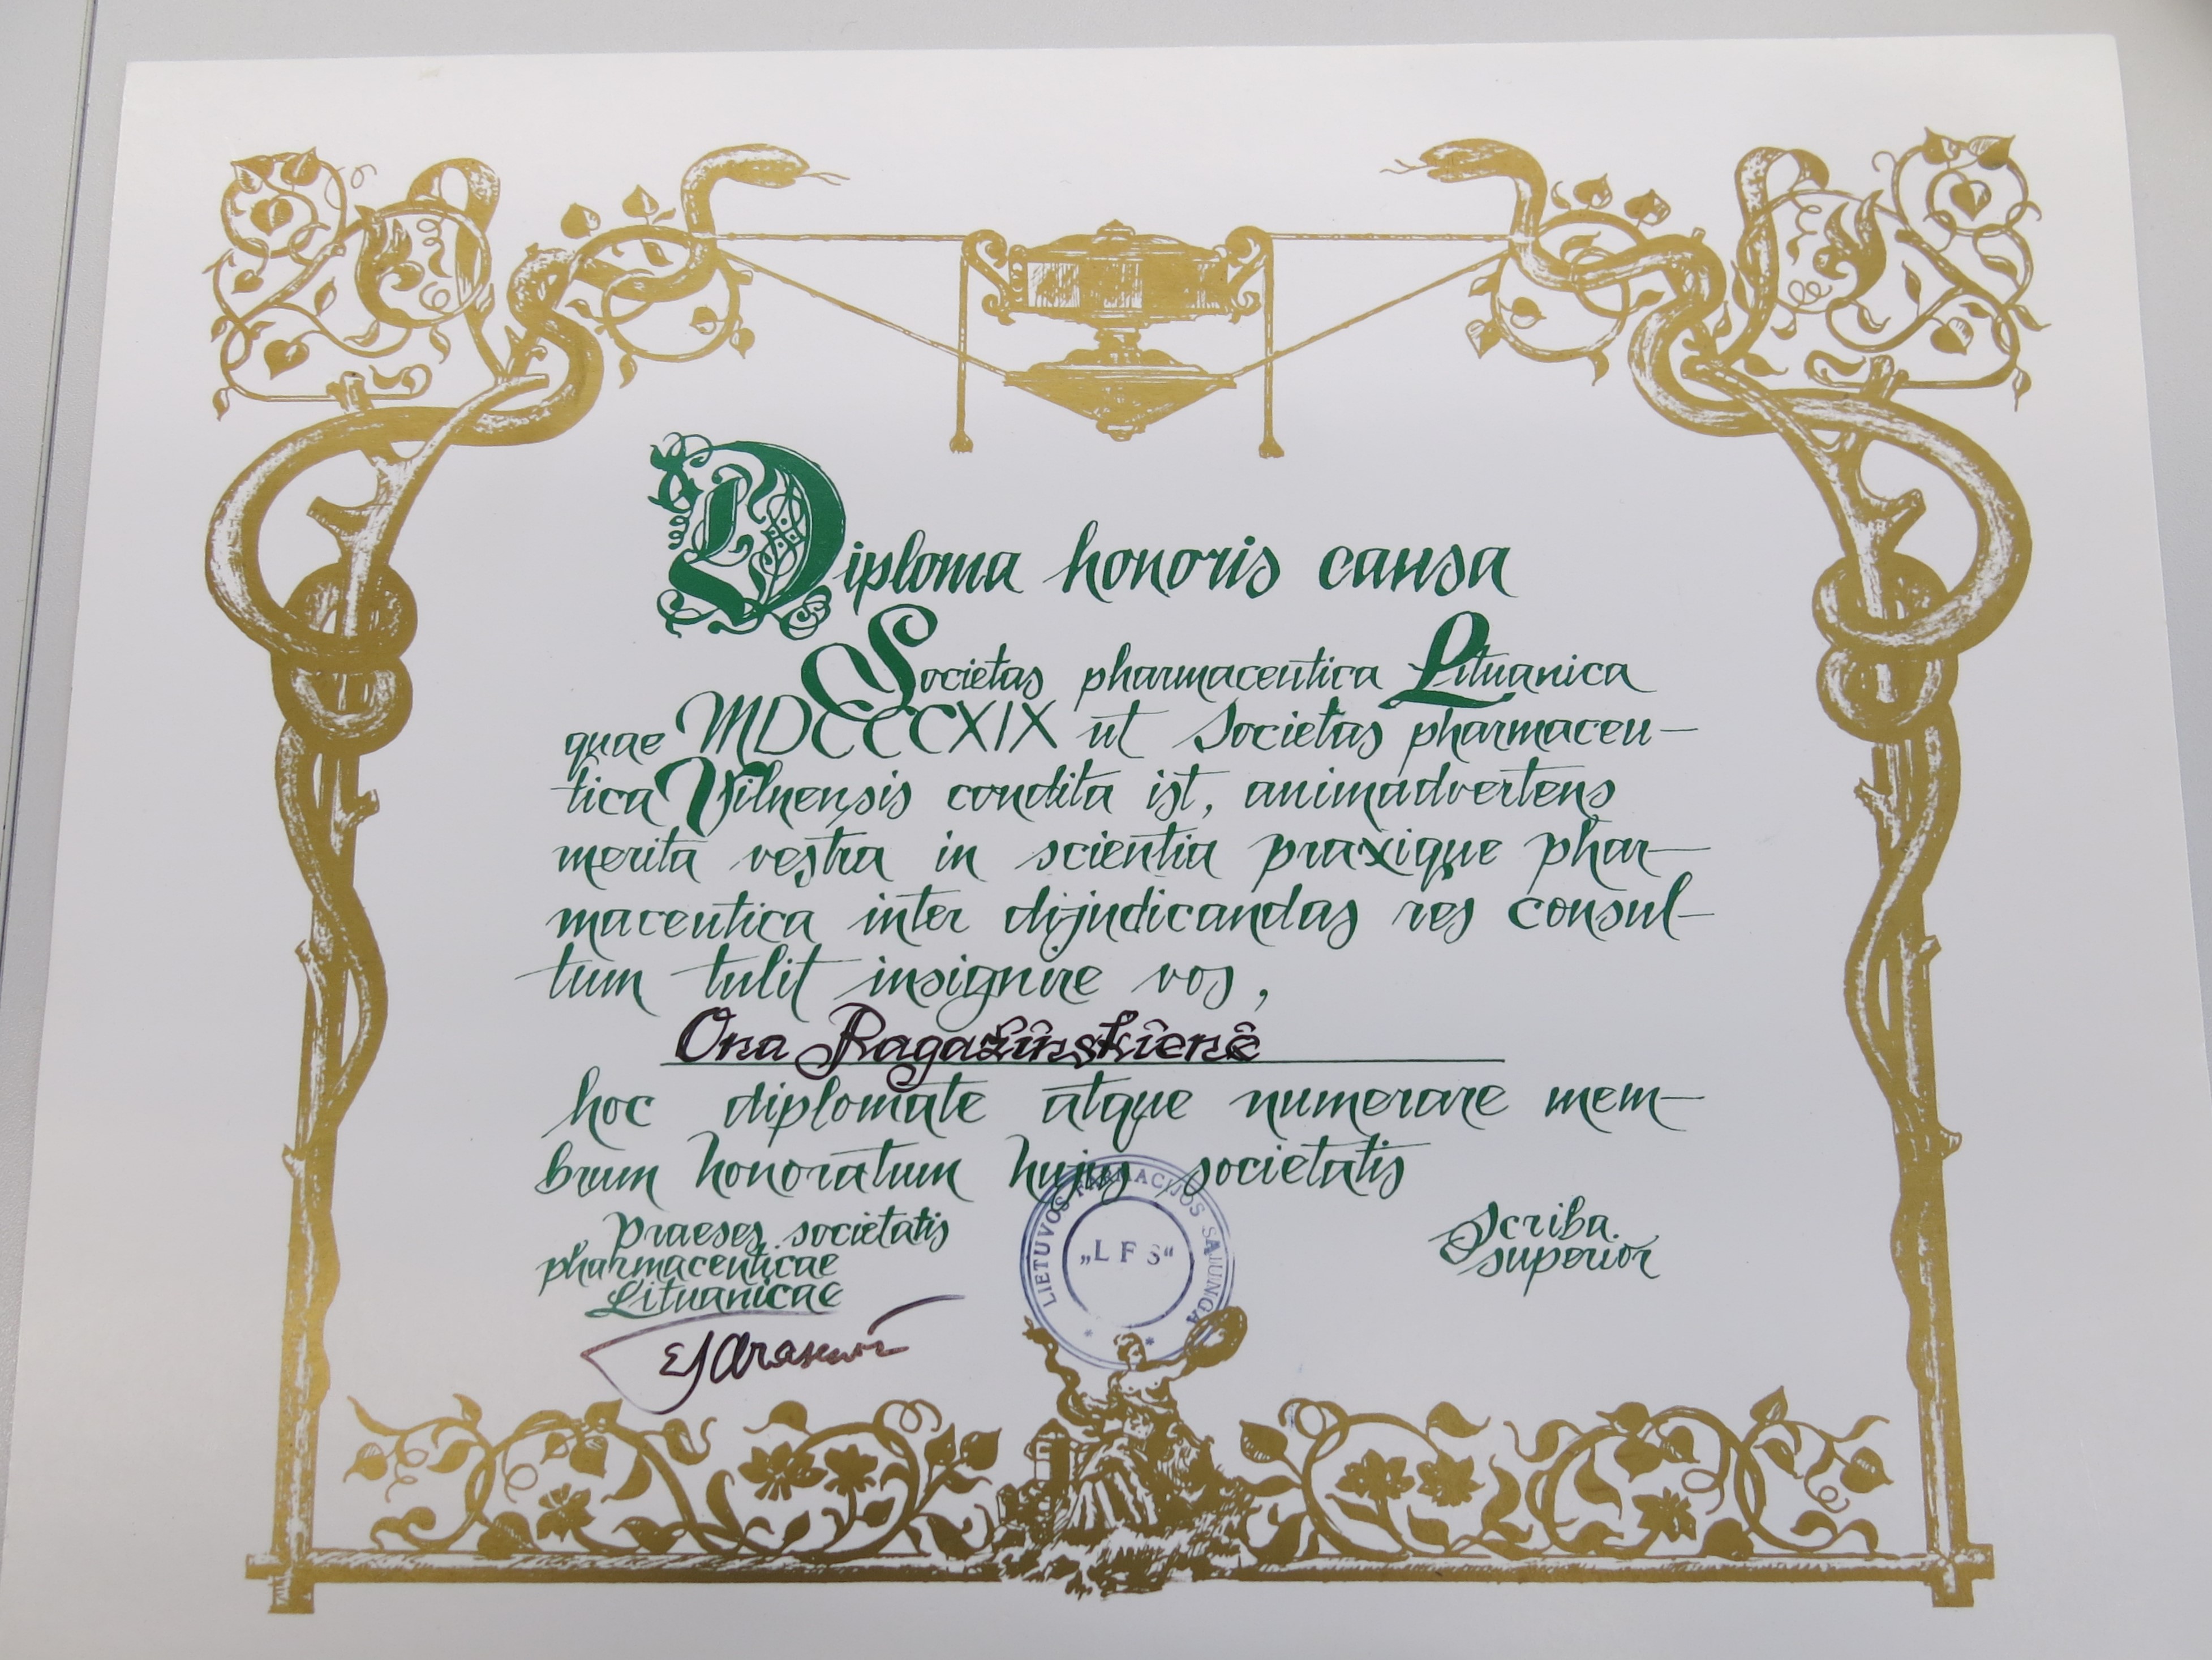 Diploma honoris causa
Societas pharmaceutica Lituanica
quae MDCCCXIX ut Societas pharmaceu-
tica Vilnensis condita ist, animadvertens
merita vestra in scientia praxique phar-
maceutica inter dijudicandas res consul-
tum tulit insignire vos,
Ona Ragažinskienė
hoc diplomate atque numerare mem-
brum honoratum hujus societatis
Praeses societatis
pharmaceuticae
Lituanicae
Scriba
superior
LIETUVOS FARMACIJOS SĄJUNGA
„LFS“